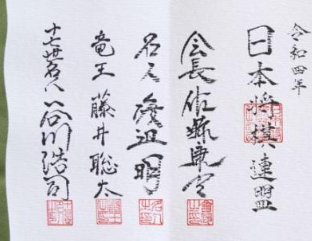 令和四年
日本将棋連盟
会長佐藤康光
名人渡辺明
竜王藤井聡太
十七世名人谷川浩司